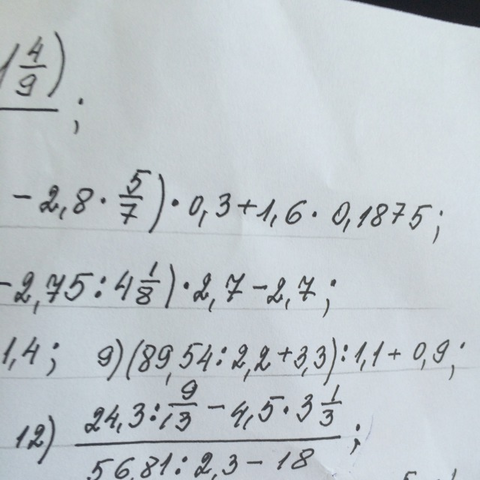 1 4/9) ;
- 2,8 · 5/7) · 0,3 + 1,6 · 0,1875;
- 2,75 : 4 1/8) · 2,7 - 2,7;
1,4; 9) (89,54 : 2,2 + 3,3) : 1,1 + 0,9;
12) 24,3 : 9/13 - 4,5 · 3 1/3 ;
56,81 : 2,3 - 18